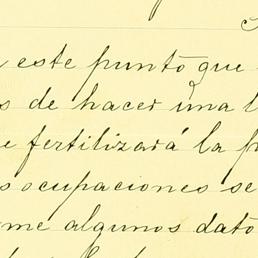 este punto que
de hacer una
fertilizará la
ocupaciones se
me algunos dato